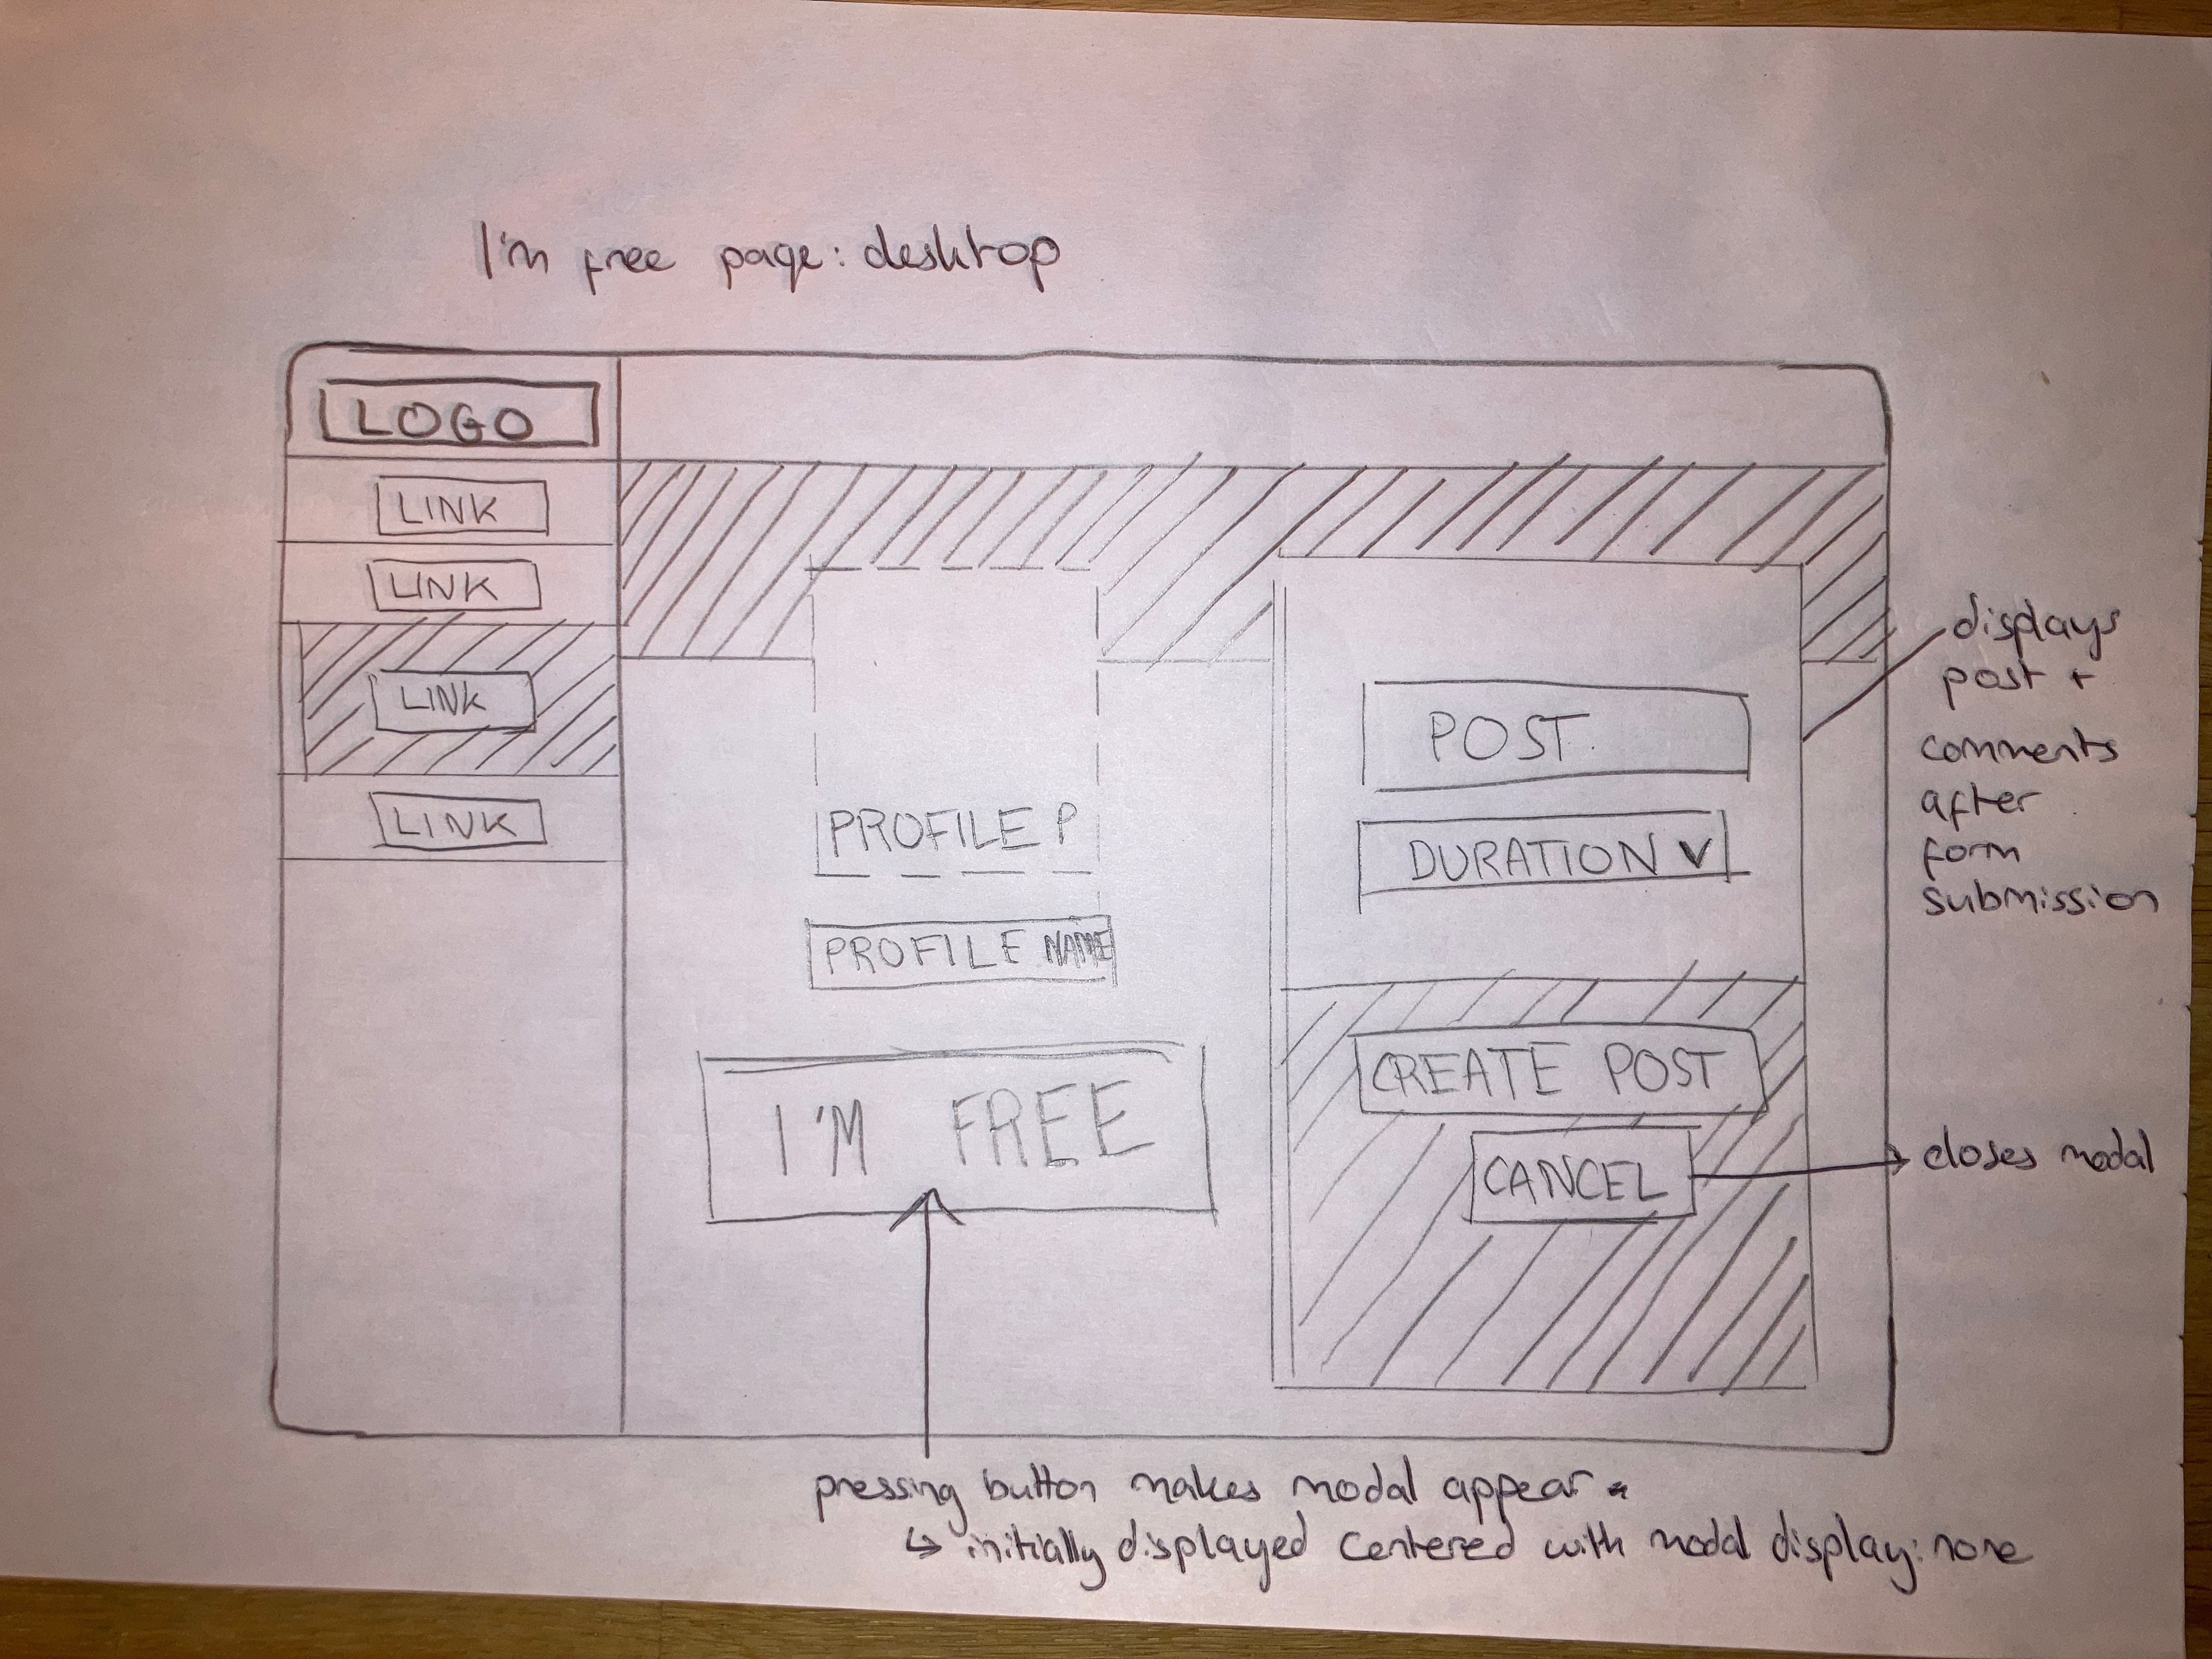 I'm free page: desktop
LOGO
LINK
LINK
LINK
LINK
PROFILE P
PROFILE NAME
I'M FREE
POST.
DURATION V
CREATE POST
CANCEL
displays
post +
comments
after
form
submission
closes modal
pressing button makes modal appear *
↳ initially displayed centered with modal display: none